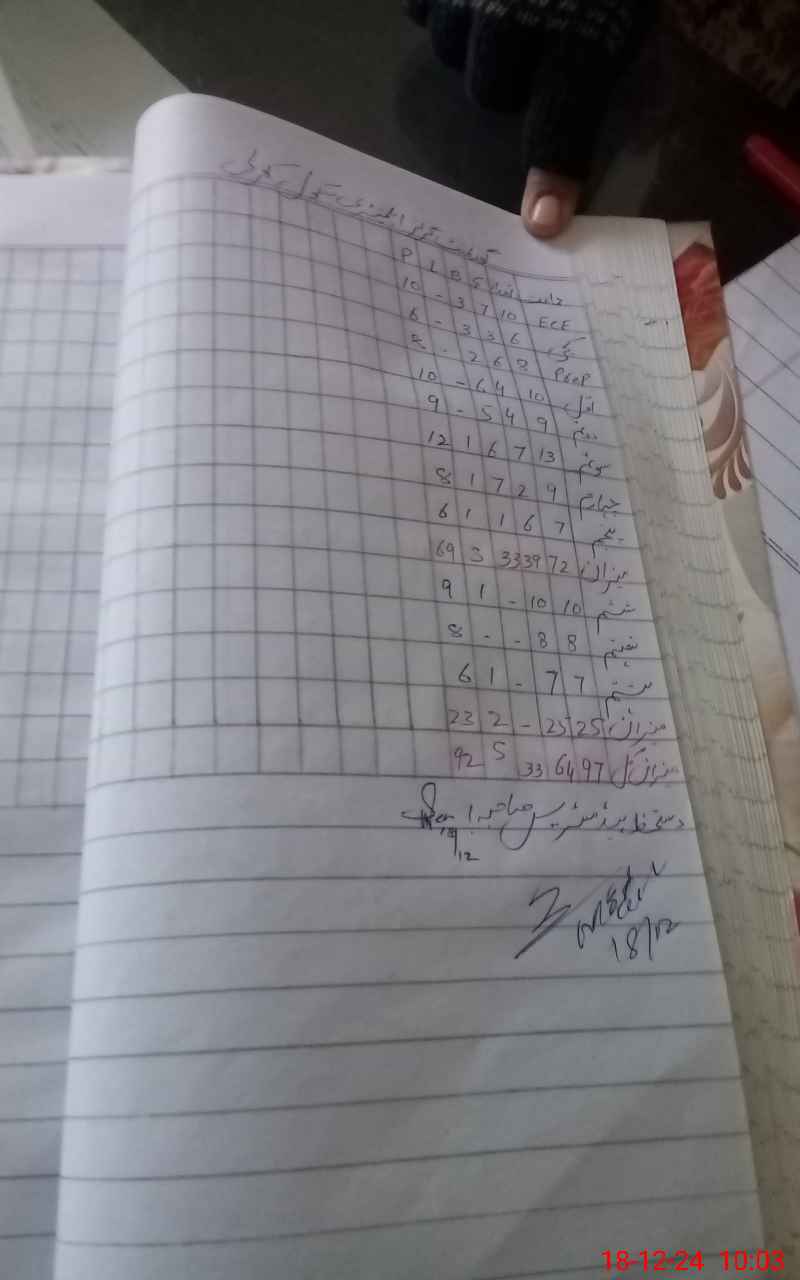 گورنمنٹ گرلز ایلیمنٹری سکول
جماعت تعداد G B L P
ECE 10 7 3 - 10
کچی 6 3 3 - 6
8 6 2 - 8
اول 10 4 6 - 10
دوئم 9 4 5 - 9
سوئم 13 7 6 1 12
چہارم 9 2 7 1 8
پنجم 7 6 1 1 6
میزان 72 39 33 3 69
ششم 10 10 - 1 9
ہفتم 8 8 - - 8
ہشتم 7 7 - 1 6
میزان 25 25 - 2 23
میزان کل 97 64 33 5 92
دستخط ہیڈ مسٹریس صاحبہ
18/12
18-12-24 10:03